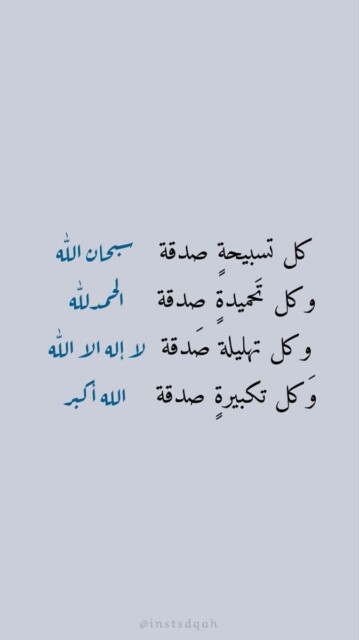 كل تسبيحةٍ صدقة سبحان الله
وكل تَحميدةٍ صدقة الحمدلله
وكل تهليلة صَدقة لا إله الا الله
وَكل تكبيرةٍ صدقة الله أكبر
@instsdqah